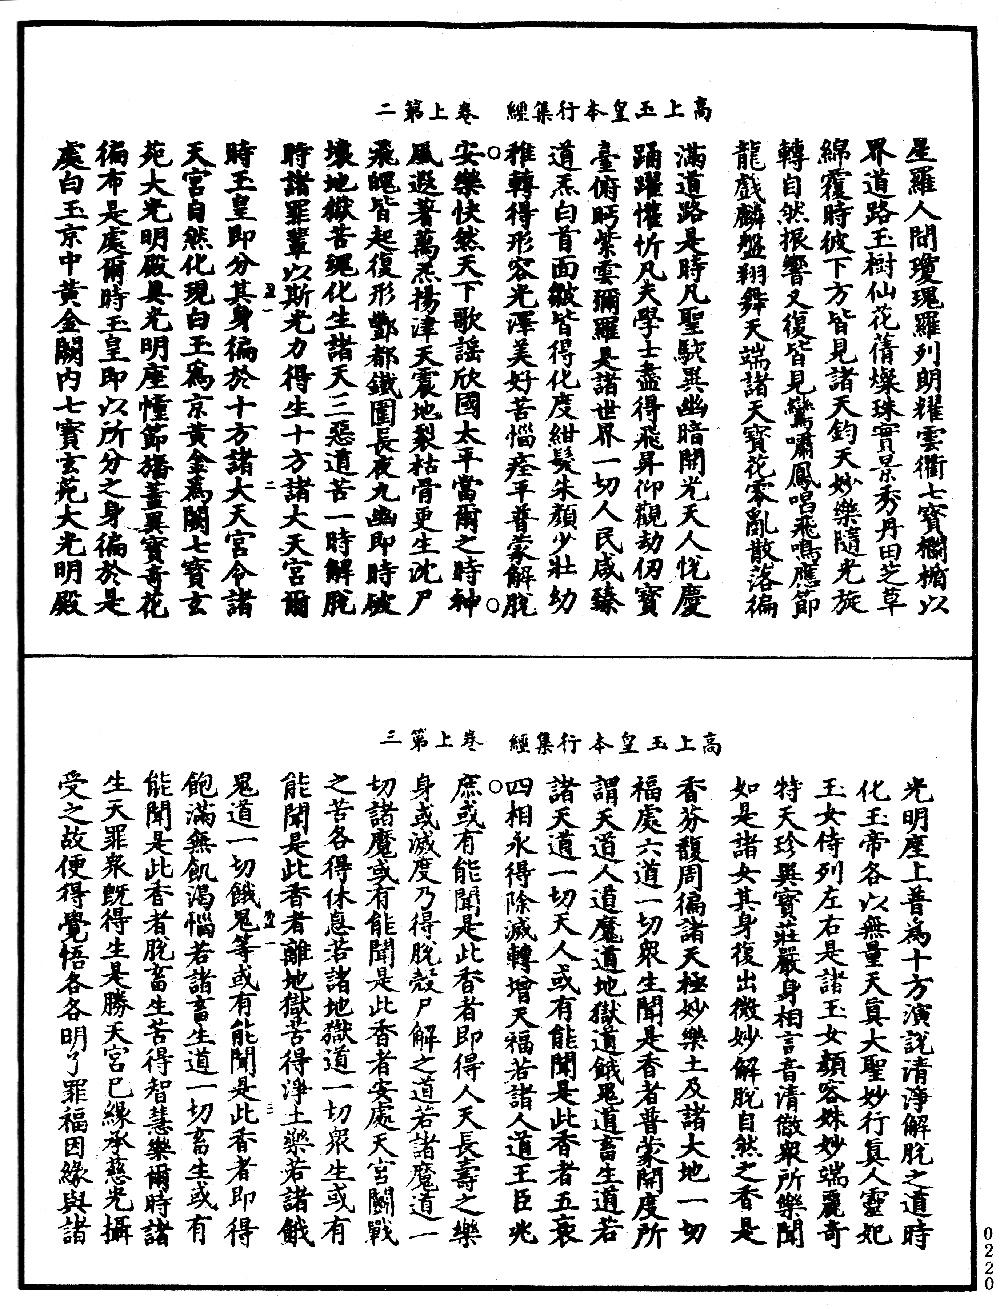 高上玉皇本行集經　卷上第二
星羅人間瓊瑰羅列朗耀雲衢七寶欄楯以
界道路玉樹仙花蒨燦珠實景秀丹田芝草
綿覆時彼下方皆見諸天鈞天妙樂隨光旋
轉自然振響又復皆見鸞嘯鳳唱飛鳴應節
龍戲麟盤翔舞天端諸天寶花零亂散落徧
滿道路是時凡聖駭異幽暗開光天人悅慶
踊躍懽忻凡夫學士盡得飛昇仰觀劫仞寶
臺俯眄紫雲彌羅是諸世界一切人民咸臻
道炁白首面皺皆得化度紺髮朱顏少壯幼
稚轉得形容光澤美好苦惱痊平普蒙解脫
安樂快然天下歌謠欣國太平當爾之時神
風遐著萬炁揚津天震地裂枯骨更生沈尸
飛魄皆起復形酆都鐵圍長夜九幽即時破
壞地獄苦魂化生諸天三惡道苦一時解脫
時諸罪輩以斯光力得生十方諸大天宮爾
時玉皇即分其身徧於十方諸大天宮令諸
天宮自然化現白玉爲京黃金爲闕七寶玄
苑大光明殿具光明座幢節旛蓋異寶奇花
徧布是處爾時玉皇即以所分之身徧於是
處白玉京中黃金闕內七寶玄苑大光明殿
高上玉皇本行集經　卷上第三
光明座上普爲十方演說清淨解脫之道時
化玉帝各以無量天真大聖妙行真人靈妃
玉女侍列左右是諸玉女顏容姝妙端麗奇
特天珍異寶莊嚴身相言音清徹衆所樂聞
如是諸女其身復出微妙解脫自然之香是
香芬馥周徧諸天極妙樂土及諸大地一切
福處六道一切衆生聞是香者普蒙開度所
謂天道人道魔道地獄道餓鬼道畜生道若
諸天道一切天人或有能聞是此香者五衰
四相永得除滅轉增天福若諸人道王臣兆
庶或有能聞是此香者即得人天長壽之樂
身或滅度乃得脫殼尸解之道若諸魔道一
切諸魔或有能聞是此香者安處天宮闘戰
之苦各得休息若諸地獄道一切衆生或有
能聞是此香者離地獄苦得淨土樂若諸餓
鬼道一切餓鬼等或有能聞是此香者即得
飽滿無飢渴惱若諸畜生道一切畜生或有
能聞是此香者脫畜生苦得智慧樂爾時諸
生天罪衆既得生是勝天宮已緣承慈光攝
受之故便得覺悟各各明了罪福因緣與諸
0220